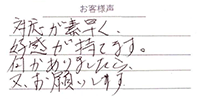 お客様声
対応が素早く、
好感が持てます。
何かありましたら、
又、お願いします